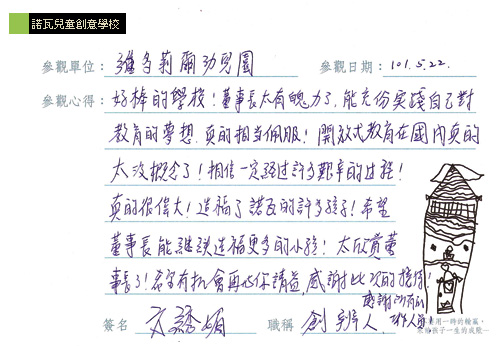 諾瓦兒童創意學校
參觀單位：維多莉爾幼兒園 參觀日期：101.5.22.
參觀心得：好棒的學校！董事長太有魄力了，能充份實踐自己對
教育的夢想，真的相當佩服！開放式教育在國內真的
太沒概念了！相信一定經过許多艱辛的过程！
真的很偉大！造福了諾瓦的許多孩子！希望
董事長能繼續造福更多的小孩！太欣賞董
事長了！希望有机會再向你請益，感謝此次的接待！
感謝所有的
工作人員
簽名 職稱 創辦人
用一時的輸贏，
孩子一生的成敗